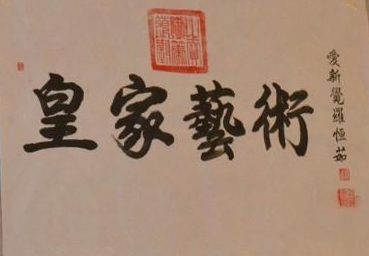 皇家藝術
愛新覺羅恒茹